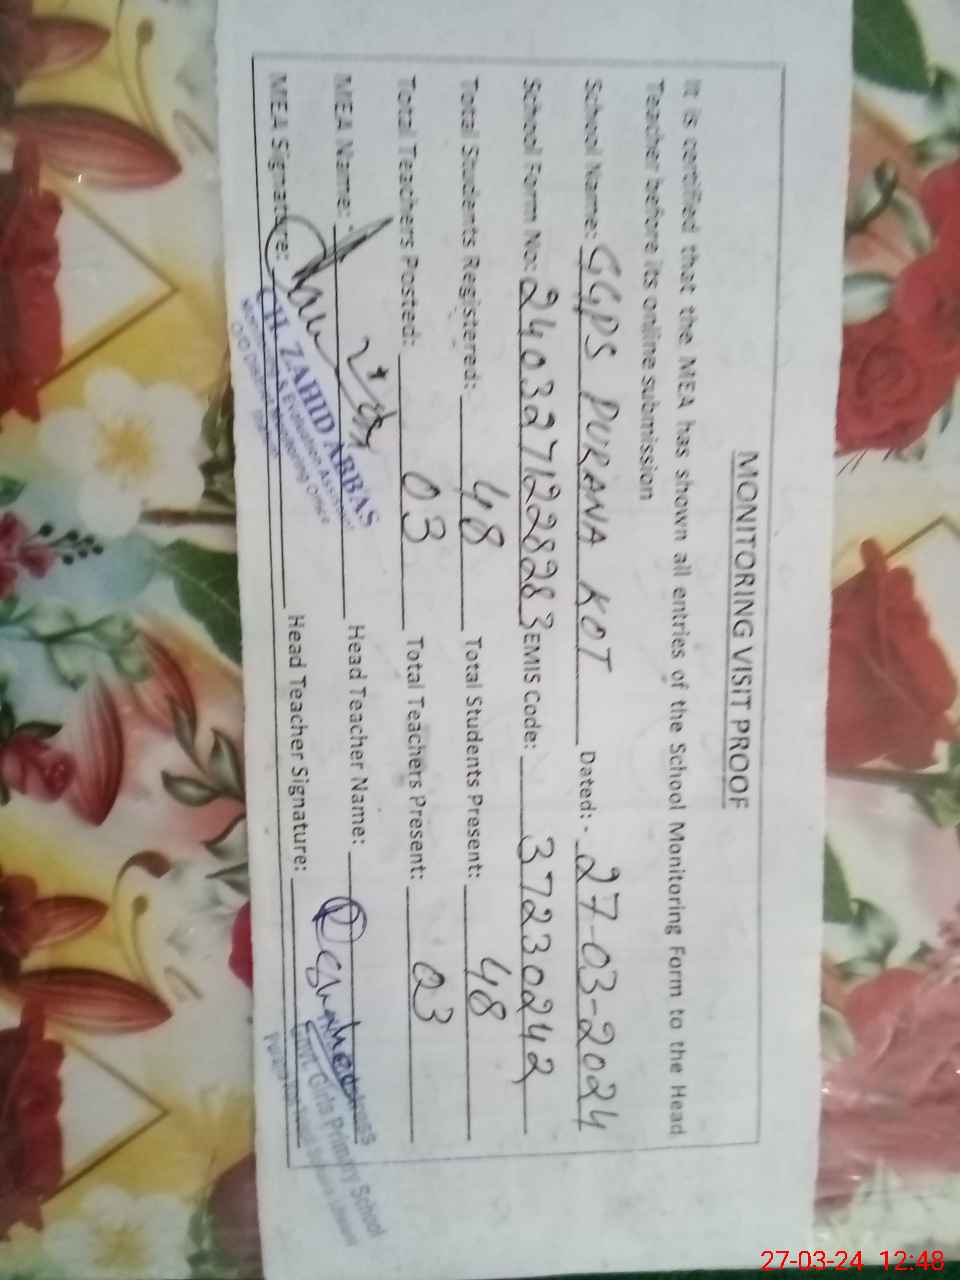 MONITORING VISIT PROOF
It is certified that the MEA has shown all entries of the School Monitoring Form to the Head
Teacher before its online submission
School Name: GGPS PURANA KOT Dated: - 27-03-2024
School Form No: 240327122823 EMIS Code: 37230242
Total Students Registered: 48 Total Students Present: 48
Total Teachers Posted: 03 Total Teachers Present: 03
MEA Name: Head Teacher Name:
MEA Signature: Head Teacher Signature:
CH. ZAHID ABBAS
Monitoring & Evaluation Assistant
O/O District Monitoring Officer
Govt. Girls Primary School
27-03-24 12:48